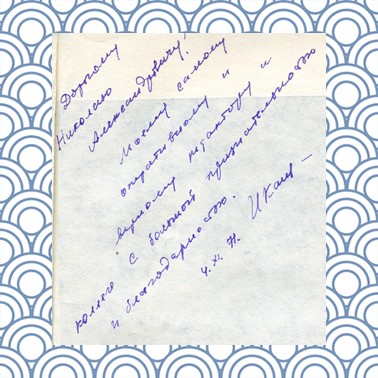 Дорогому
Николаю
Александровичу!
Моему самому
оперативному и
умному редактору и
коллеге с большой признательностью
и благодарностью.
4.XI.71.